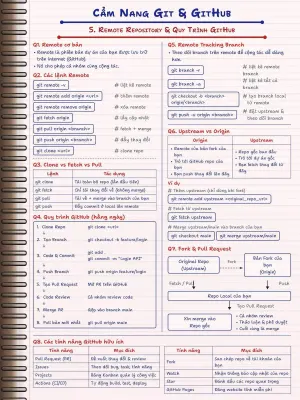 Cẩm Nang Git & GitHub
5. Remote Repository & Quy Trình GitHub
Q1. Remote cơ bản
• Remote là phiên bản dự án của bạn được lưu trữ
trên Internet (GitHub).
• Nơi cho phép cả nhóm cùng cộng tác.
Q2. Các lệnh Remote
git remote -v # liệt kê remote
git remote add origin <url> # thêm remote
git remote remove origin # xóa remote
git fetch origin
git pull origin <branch> # fetch + merge
git push origin <branch>
git clone <url>
Q3. Clone vs Fetch vs Pull
Lệnh Tác dụng
git clone
git fetch
git pull
git push
Q4. Quy trình GitHub (hằng ngày)
1. Clone Repo git clone <url>
2. Tạo Branch git checkout -b feature/login
3. Code & Commit git add .
git commit -m "Login API"
4. Push Branch git push origin feature/login
5. Tạo Pull Request Mở PR trên GitHub
6. Code Review Cả nhóm review code
7. Merge PR Gộp vào branch main
8. Pull bản mới nhất git pull origin main
Q5. Remote Tracking Branch
• Theo dõi branch trên remote để cộng tác dễ dàng
hơn.
git branch -r # liệt kê remote
branch
git branch -a # liệt kê tất cả
branch
git checkout -b <branch>
origin/<branch> # tạo branch local
từ remote
git push -u origin <branch> # đẩy & theo dõi
Q6. Upstream vs Origin
Origin Upstream
• Remote của bản fork của
bạn.
• Trỏ tới GitHub repo của
bạn
• Bạn push thay đổi lên đây
• Repo gốc ban đầu
• Trỏ tới dự án gốc
Ví dụ
# Thêm upstream (chỉ dùng khi fork)
git remote add upstream <original_repo_url>
# Fetch từ upstream
git fetch upstream
# Merge upstream/main vào branch của bạn
git checkout main
git merge upstream/main
Q7. Fork & Pull Request
Original Repo
(Upstream)
Fork
Bản Fork của
bạn
(Origin)
Clone
Repo Local của bạn
Tạo Pull Request
Xin merge vào
Repo gốc
• Cả nhóm review
• Thảo luận & phê duyệt
• Cuối cùng là merge
Q8. Các tính năng GitHub hữu ích
Tính năng Mục đích
Pull Request (PR) Đề xuất thay đổi & review
Issues Theo dõi bug, task, tính năng
Projects Bảng Kanban quản lý công việc
Actions (CI/CD) Tự động build, test, deploy
Tính năng Mục đích
Fork Sao chép repo về tài khoản của
bạn
Watch Nhận thông báo cập nhật của repo
Star Đánh dấu các repo quan trọng
GitHub Pages Đăng website tĩnh miễn phí